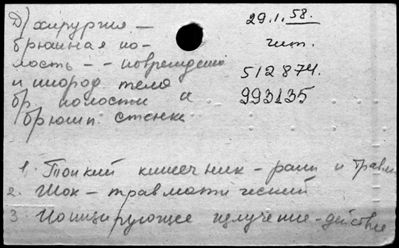 Д) хирургия —
брюшная по-
лость - - повреждения
и инород тела
бр полости и
брюшн. стенке
29.1.58.
чит.
512874.
993135
1. Тонкий кишечник - раны и травм
2. Шок - травматический
3. Ионизирующее излучение - действие